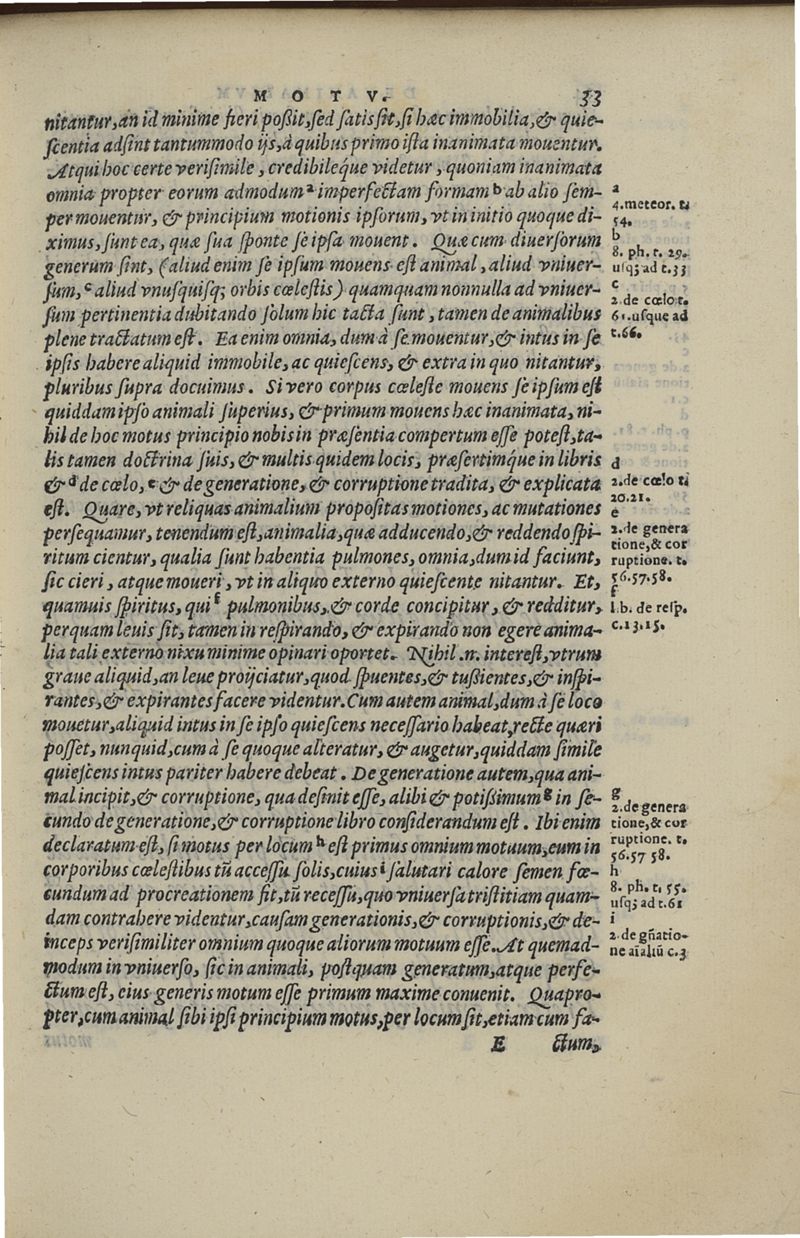 M O T V. 33
nitantur, an id minime fieri poßit, sed satis sit, si hæc immobilia, & quie-
scentia adsint tantummodo ijs, à quibus primo ista inanimata mouentur.
Atqui hoc certe verisimile, credibileq́ue videtur, quoniam inanimata
omnia propter eorum admodum ᵃ imperfectam formam ᵇ ab alio sem-
per mouentur, & principium motionis ipsorum, vt in initio quoque di-
ximus, sunt ea, quæ sua sponte se ipsa mouent. Quæ cum diuersorum
generum sint, (aliud enim se ipsum mouens est animal, aliud vniuer-
sum, ᶜ aliud vnusquisq; orbis cœlestis) quamquam nonnulla ad vniuer-
sum pertinentia dubitando solum hic tacta sunt, tamen de animalibus
plene tractatum est. Ea enim omnia, dum à se mouentur, & intus in se
ipsis habere aliquid immobile, ac quiescens, & extra in quo nitantur,
pluribus supra docuimus. Si vero corpus cœleste mouens se ipsum est
quiddam ipso animali superius, & primum mouens hæc inanimata, ni-
hil de hoc motus principio nobis in præsentia compertum esse potest, ta-
lis tamen doctrina suis, & multis quidem locis, præsertimq́ue in libris
& ᵈ de cœlo, ᵉ & de generatione, & corruptione tradita, & explicata
est. Quare, vt reliquas animalium propositas motiones, ac mutationes
persequamur, tenendum est, animalia, quæ adducendo, & reddendo spi-
ritum cientur, qualia sunt habentia pulmones, omnia, dum id faciunt,
sic cieri, atque moueri, vt in aliquo externo quiescente nitantur. Et,
quamuis spiritus, qui ᶠ pulmonibus, & corde concipitur, & redditur,
perquam leuis sit, tamen in respirando, & expirando non egere anima-
lia tali externo nixu minime opinari oportet. Nihil .n. interest, vtrum
graue aliquid, an leue proijciatur, quod spuentes, & tußientes, & inspi-
rantes, & expirantes facere videntur. Cum autem animal, dum à se loco
mouetur, aliquid intus in se ipso quiescens necessario habeat, recte quæri
posset, nunquid, cum à se quoque alteratur, & augetur, quiddam simile
quiescens intus pariter habere debeat. De generatione autem, qua ani-
mal incipit, & corruptione, qua desinit esse, alibi & potißimum ᵍ in se-
cundo de generatione, & corruptione libro considerandum est. Ibi enim
declaratum est, si motus per locum ʰ est primus omnium motuum, eum in
corporibus cœlestibus tū accessu solis, cuius ⁱ salutari calore semen fœ-
cundum ad procreationem fit, tū recessu, quo vniuersa tristitiam quam-
dam contrahere videntur, causam generationis, & corruptionis, & de-
inceps verisimiliter omnium quoque aliorum motuum esse. At quemad-
modum in vniuerso, sic in animali, postquam generatum, atque perfe-
ctum est, eius generis motum esse primum maxime conuenit. Quapro-
pter, cum animal sibi ipsi principium motus, per locum sit, etiam cum fa-
E ctum,
a
4.meteor. ti
54.
b
8. ph. t. 29.
usq; ad t.33
c
2.de cœlo t.
61.usque ad
t.66.
d
2.de cœlo ti
20.21.
e
2.de genera
tione,& cor
ruptione. t.
56.57.58.
f
l.b. de resp.
c.13.15.
g
2.de genera
tione,& cor
ruptione. t.
56.57 58.
h
8. ph. t. 55.
usq; ad t.61
i
2.de gñatio-
ne aīaliū c.3